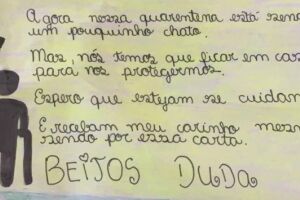 Agora nessa quarentena está send
um pouquinho chato.
Mas, nós temos que ficar em cas
para nos protegermos.
Espero que estejam se cuidan
E recebam meu carinho mesm
sendo por essa carta.
BEIJOS DUDA